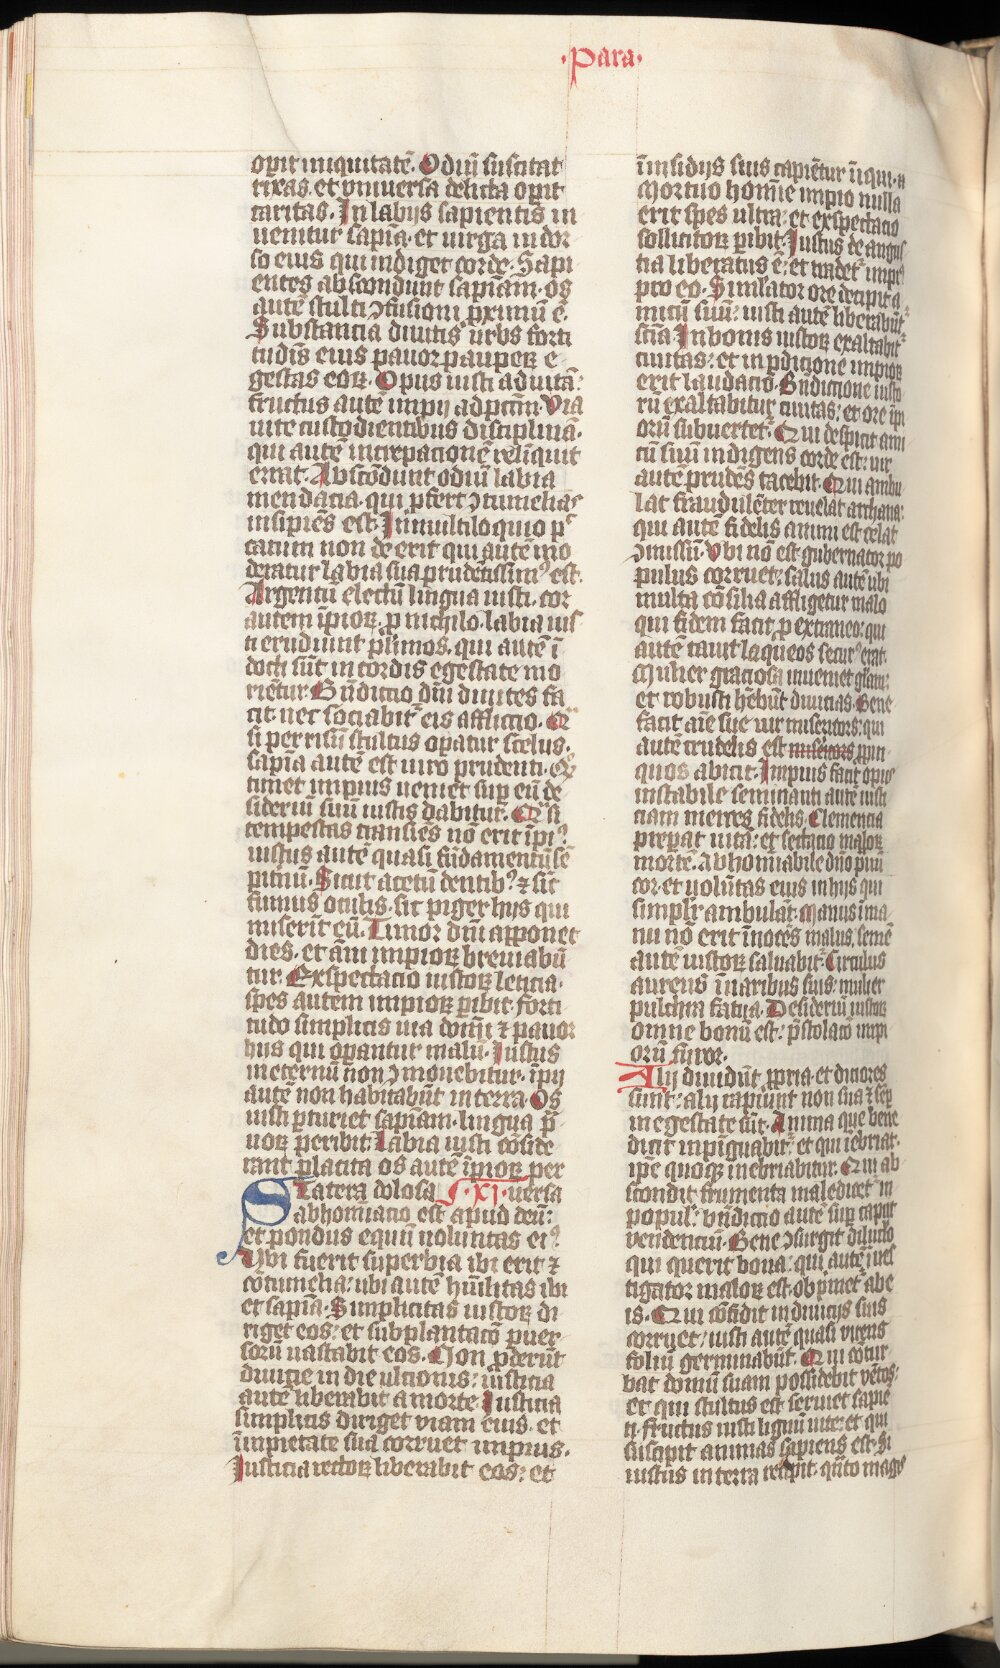 ·Para·
opit iniquitatē. Odiū suscitat
rixas. et vniuersa delicta opit
caritas. In labijs sapientis in
uenitur sapīa. et uirga in dor
so eius qui indiget corde. Sapi
entes abscondunt sapīam. os
autē stulti ꝯfusioni ꝓximū ē.
Substancia diuitis urbs forti
tudīs eius pauor pauperꝝ e
gestas eoꝝ. Opus iusti ad uitā:
fructus autē impij ad pctm̄. Via
uite custodientibus disciplinā.
qui autē increpacionē relīquit
errat. Abscōdunt odiū labia
mendacia. qui ꝓfert ꝯtumelias
insipiēs est. In multiloquio pc̄
catum non de erit qui autē mo
deratur labia sua prudētissimꝰ est.
Argentū electū lingua iusti. cor
autem īpioꝝ. ꝓ nichilo. labia ius
ti erudiunt plīmos. qui autē ī
docti sūt in cordis egestate mo
riētur. Bn̄dictio dn̄i diuites fa
cit. nec sociabitr eis afflictio. Q̄
si per risū stultus opatur scelus.
sapīa autē est uiro prudenti. Qd̄
timet impius ueniet sup eū de
sideriū suū iustis dabitur. Q̄si
tempestas transiēs nō erit īpiꝰ.
iustus autē quasi fūdamentū sē
pitnū. Sicut acetū dentibꝰ ⁊ sic̄
fumus oculis. sic piger hijs qui
miserīt eū. Timor dn̄i apponet
dies. et ān̄i impioꝝ breuiabū
tur. Exspectacio iustoꝝ leticia.
spes autem impioꝝ ꝑibit. forti
tudo simplicis uia dom̄i ⁊ pauor
hijs qui opantur malū. Iustus
ineternū non ꝯmouebitur. īpij
autē non habitabūt in terra. Os
iusti ꝑturiet sapīam. lingua ꝑ
uoꝝ peribit. Labia iusti cōside
rant placita os autē īpioꝝ per
Statera dolosa .XI. uersa
abhominacio est apud deū:
et pondus equū uoluntas eiꝰ
Vbi fuerit superbia ibi erit ⁊
cōtumelia: ubi autē hūilitas ibi
et sapīa. Simplicitas iustoꝝ di
riget eos: et subplantacō ꝑuer
soꝝ uastabit eos. Non ꝓderūt
diuicie in die ulcionis: iusticia
autē liberabit a morte. Iusticia
simplicis diriget viam eius. et
īmpietate sua corruet impius.
Iusticia rectoꝝ liberabit eos: et
ī insidijs suis capiētur īiqui.
Mortuo homīe impio nulla
erit spes ultra: et exspectacio
sollicitoꝝ ꝑibit. Iustus de angus
tia liberatus ē: et tradetr impiꝰ
pro eo. Simlator ore decipit a
micū suū: iusti autē liberabūt
scīa. In bonis iustoꝝ exaltabit
ciuitas: et in ꝑdicione impioꝝ
erit laudacō. Bn̄dictione iusto
rū exaltabitur ciuitas: et ore īpi
orū subuertetr. Qui despicit ami
cū suū indigens corde est: uir
autē prudēs tacebit. Qui ambu
lat fraudulēter reuelat archana:
qui autē fidelis animi est celat
ꝯmissū. Vbi nō est gubernator po
pulus corruet: salus autē ubi
multa cōsilia affligetur malo
qui fidem facit ꝓ extraneo: qui
autē cauit laqueos securꝰ erit.
Mulier graciosa inueniet glam:
et robusti hēbūt diuicias. Bene
facit aīe sue uir misericors: qui
autē crudelis est misericors ꝓpin
quos abicit. Impius facit opus
instabile seminanti autē iusti
ciam merces fidelis. Clemencia
preparat uitā: et sectacio maloꝝ
mortē. Abhomiabile dn̄o prauū
cor. et uolūtas eius in hijs qui
simplr̄ ambulāt. Manus ī ma
nu nō erit īnocēs malus. semē
autē iustoꝝ saluabitr. Circulus
aureus ī naribus suis: mulier
pulchra fatua. Desideriū iustoꝝ
omne bonū est: p̄stolacō impi
orū furor.
Alij diuidūt ꝓpria. et diciores
fiunt: alij rapiūnt non sua ⁊ sēp
in egestate sūt. Anima que bene
dicit inpīguabitr: et qui īebriat.
ipē quoqꝫ inebriabitur. Qui ab
scondit frumenta maledicetr in
populꝭ: bn̄dictio autē sup caput
vendenciū. Bene ꝯsurgit diluclo
qui querit bona: qui autē īues
tigator maloꝝ est. obpīmetr abe
is. Qui cōfidit in diuicijs suis
corruet: iusti autē quasi virens
foliū germinabūt. Qui cōtur
bat domū suam possidebit vētos:
et qui stultus est seruiet sapiē
ti. fructus iusti lignū uite: et qui
suscipit animas sapiens est. Si
iustus in terra recipit. qn̄to magis